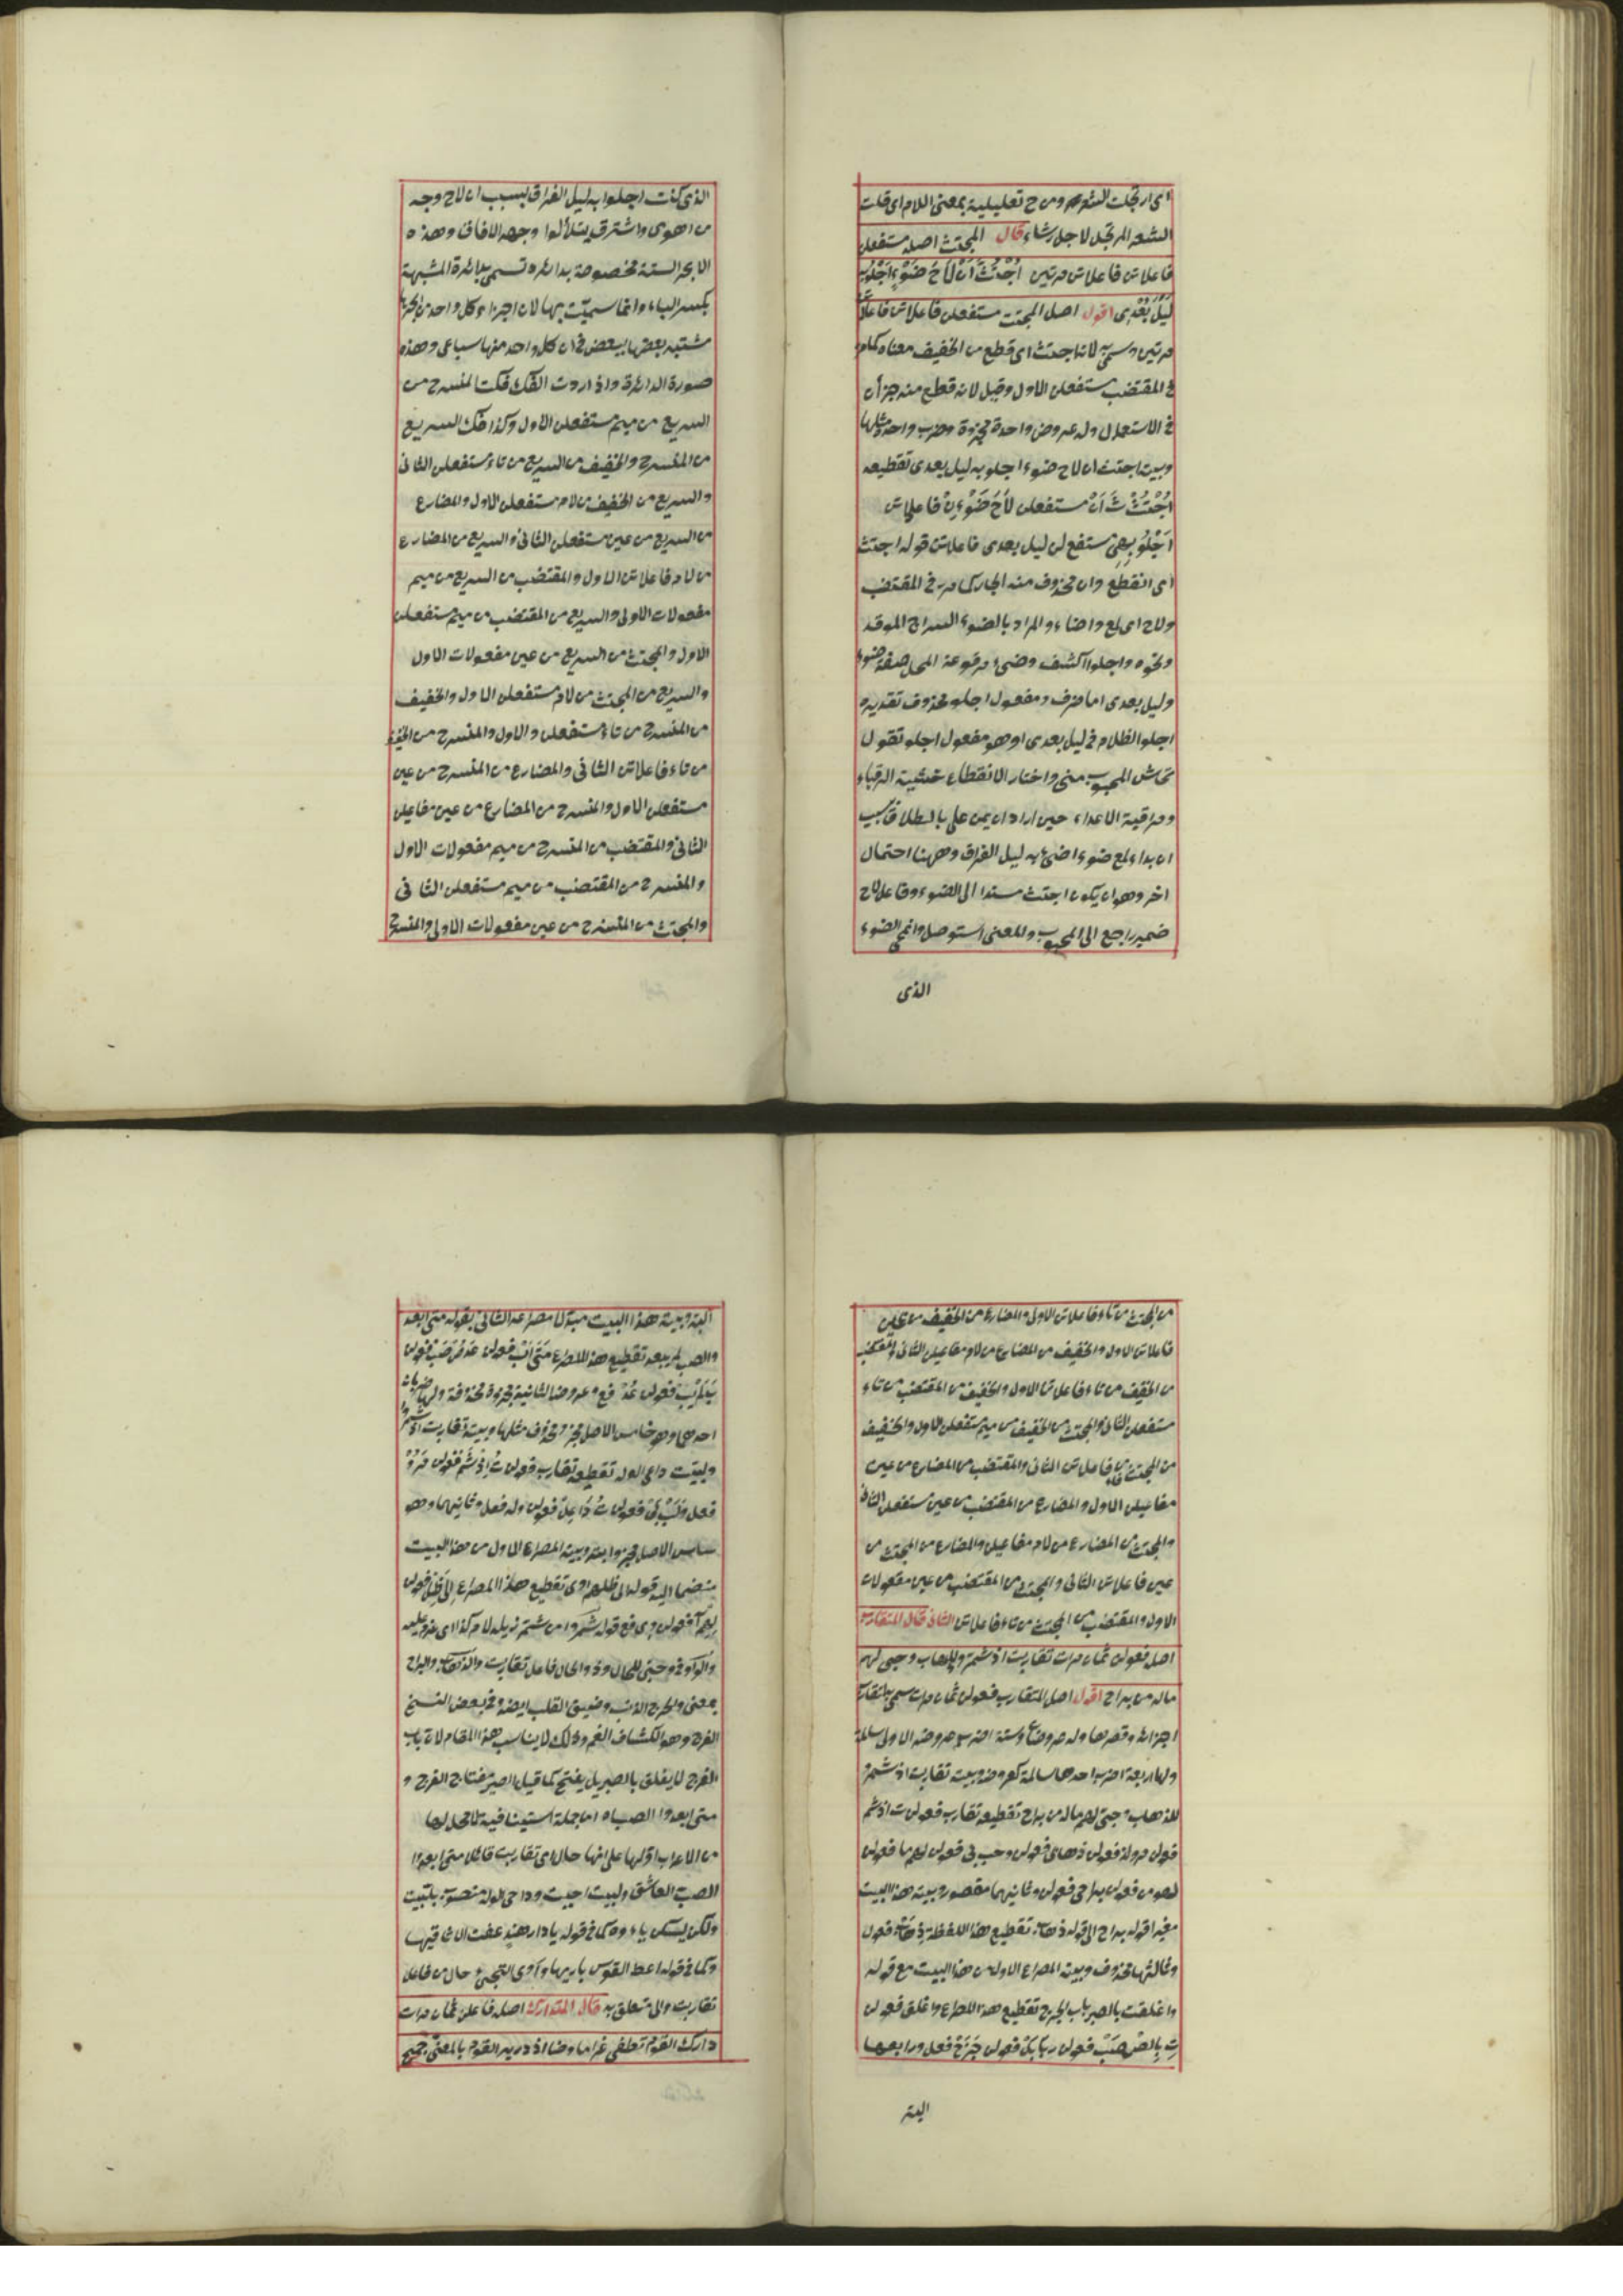 اى ارتجلت الشعر ومن ح تعليلية بمعنى اللام اى قلت
الشعر المرتجل لاجل رشاء قال المجتث اصله مستفعلن
فاعلاتن فاعلاتن مرتين اُجْتُثَّ اَنْ لَاحَ ضَوْءٍ اَجْلُو بِهِ
لَيْلَ بُعْدِى اقول اصل المجتث مستفعلن فاعلاتن فاعلاتن
مرتين وسمى به لانه اجتث اى قطع من الخفيف معناه كما مر
فى المقتضب مستفعلن الاول وقيل لانه قطع منه جزأن
فى الاستعمال وله عروض واحدة مجزوة وضرب واحد مثلها
وبيته اجتث ان لاح ضوء اجلو به ليل بعدى تقطيعه
اُجْتُثْ ثَ اَنْ مستفعلن لَاحَ ضَوْءٍ نْ فاعلاتن
اَجْلُو بِهِى مستفع لن ليل بعدى فاعلاتن قوله اجتث
اى انقطع وان محذوف منه الجار كما مر فى المقتضب
ولاح اى لمع واضاء والمراد بالضوء السراج الموقد
ونحوه واجلوا اكشف وضىء مرفوعة المحل صفة ضوء
وليل بعدى اما ظرف ومفعول اجلو محذوف تقديره
اجلو الظلام فى ليل بعدى او هو مفعول اجلو تقول
تحاش المحبوب منى واختار الانقطاع خشية الرقباء
ومراقبة الاعداء حين اراد ان يمن على بالطلاق بسبب
ان بداء لمع ضوء اضىء به ليل الفراق وههنا احتمال
اخر وهو ان يكون اجتث مسندا الى الضوء وفاعل لاح
ضمير راجع الى المحبوب والمعنى استوصل وانمحى الضوء
الذى
الذى كنت اجلوا به ليل الفراق بسبب ان لاح وجه
من اهوى واشترق يتلألوا وجهه الافاق وهذه
الابحر الستة مخصوصة بدائرة تسمى بدائرة المشبهة
بكسر الباء وانما سميت بها لان اجزاء كل واحد من ابحرها
مشتبه بعضها ببعض فى ان كل واحد منها سباعى وهذه
صورة الدائرة واذا اردت الفك فكت المنسرح من
السريع من ميم مستفعلن الاول وكذا فك السريع
من المنسرح والخفيف من السريع من تاء مستفعلن الثانى
والسريع من الخفيف من لام مستفعلن الاول والمضارع
من السريع من عين مستفعلن الثانى والسريع من المضارع
من لام فاعلاتن الاول والمقتضب من السريع من ميم
مفعولات الاولى والسريع من المقتضب من ميم مستفعلن
الاول والمجتث من السريع من عين مفعولات الاول
والسريع من المجتث من لام مستفعلن الاول والخفيف
من المنسرح من تاء مستفعلن والاول والمنسرح من الخفيف
من تاء فاعلاتن الثانى والمضارع من المنسرح من عين
مستفعلن الاول والمنسرح من المضارع من عين مفاعيلن
الثانى والمقتضب من المنسرح من ميم مفعولات الاول
والمنسرح من المقتضب من ميم مستفعلن الثانى
والمجتث من المنسرح من عين مفعولات الاولى والمنسرح
من المجتث من تاء فاعلاتن الاول والمضارع من الخفيف من عين
فاعلاتن الاول والخفيف من المضارع من لام مفاعيلن الثانى والمقتضب
من الخفيف من تاء فاعلاتن الاول والخفيف من المقتضب من تاء
مستفعلن الثانى والمجتث من الخفيف من ميم مستفعلن الاول والخفيف
من المجتث من فاعلاتن الثانى والمقتضب من المضارع من عين
مفاعيلن الاول والمضارع من المقتضب من عين مستفعلن الثانى
والمجتث من المضارع من لام مفاعيلن والمضارع من المجتث من
عين فاعلاتن الثانى والمجتث من المقتضب من عين مفعولات
الاول والمقتضب من المجتث من تاء فاعلاتن الثانى قال المتقارب
اصله فعولن ثمان مرات تقاربت اذ شمروا للذهاب وجبى لهم
ماله من براح اقول اصل المتقارب فعولن ثمان مرات سمى به لتقارب
اجزائه وقصرها وله عروضان وستة اضرب عروضه الاولى سالمة
ولها اربعة اضرب احدها سالمة كعروضه وبيته تقاربت اذ شمروا
للذهاب وجبى لهم ماله من براح تقطيعه تقارب فعولن ت اذ شم
فعولن مرولذ فعولن ذهابى فعولن وحب بى فعولن لهم ما فعولن
لهو من فعولن براحى فعولن وثانيهما مقصور وبيته هذا البيت
مغيرا قوله براح الى قوله ذهاب تقطيع هذا اللفظة ذهاب فعول
وثالثها محذوف وبيته المصراع الاول من هذا البيت مع قوله
واغلقت بالصبر باب الحرج تقطيع هذا المصراع واغلق فعولن
تِ بِالصْصَبْ فعولن رِبَابَلْ فعولن حَرَجْ فعل ورابعها
البتر
البتر وبيته هذا البيت مبدلا مصراعه الثانى بقوله متى ابعد
والصب لم يبعد تقطيع هذا المصراع مَتَى اَبْ فعولن عَدُصْ صَبْ فعولن
بُ لَمْ يَبْ فعولن عُدْ فع وعروضها الثانية مجزوة محذوفة ولها ضربان
احدهما وهو خامس الاصل مجزو محذوف مثلها وبيته تقاربت اذ شمروا
ولبيت داعى الوله تقطيعه تقارب فعولن تُ اِذْ شَمْ فعولن مَرُوْ
فعل وَلَبْ بَىْ فعولن تُ دَا عِلْ فعولن وله فعل وثانيهما وهو
سادس الاصل مجزو ابتر وبيته المصراع الاول من هذا البيت
منضما اليه قوله الى ظلهم اوى تقطيع هذا المصراع اِلَى ظِلْ فعولن
لِهِمْ اَا فعولن وِى فع قوله شمروا من شمر ذيله لامر كذا اى عزم عليه
والواو فى وحبى للحال وذو الحال فاعل تقاربت والذهاب والبراح
بمعنى والحرج الاثم وضيق القلب ايضا وفى بعض النسخ
الفرج وهو انكشاف الغم وذلك لا يناسب هذا المقام لان باب
الفرج لا يغلق بالصبر بل يفتح كما قيل الصبر مفتاح الفرج و
متى ابعدوا الصب اه اما جملة استينافية لا محل لها
من الاعراب او لها على انها حال اى تقاربت قائلا متى ابعدوا
الصب العاشق ولبيت اجبت وداعى الوله منصوب بلبيت
ولكن يسكن ياءه كما فى قوله يا دار هند عفت الا اثافيها
وكما فى قوله اعط القوس باريها واَوى التجئ حال من فاعل
تقاربت والى متعلق به قال المتدارك اصله فاعلن ثمان مرات
دارك القوم تطفى غراما وضا اذ دريه القوم بالمعنى جميع